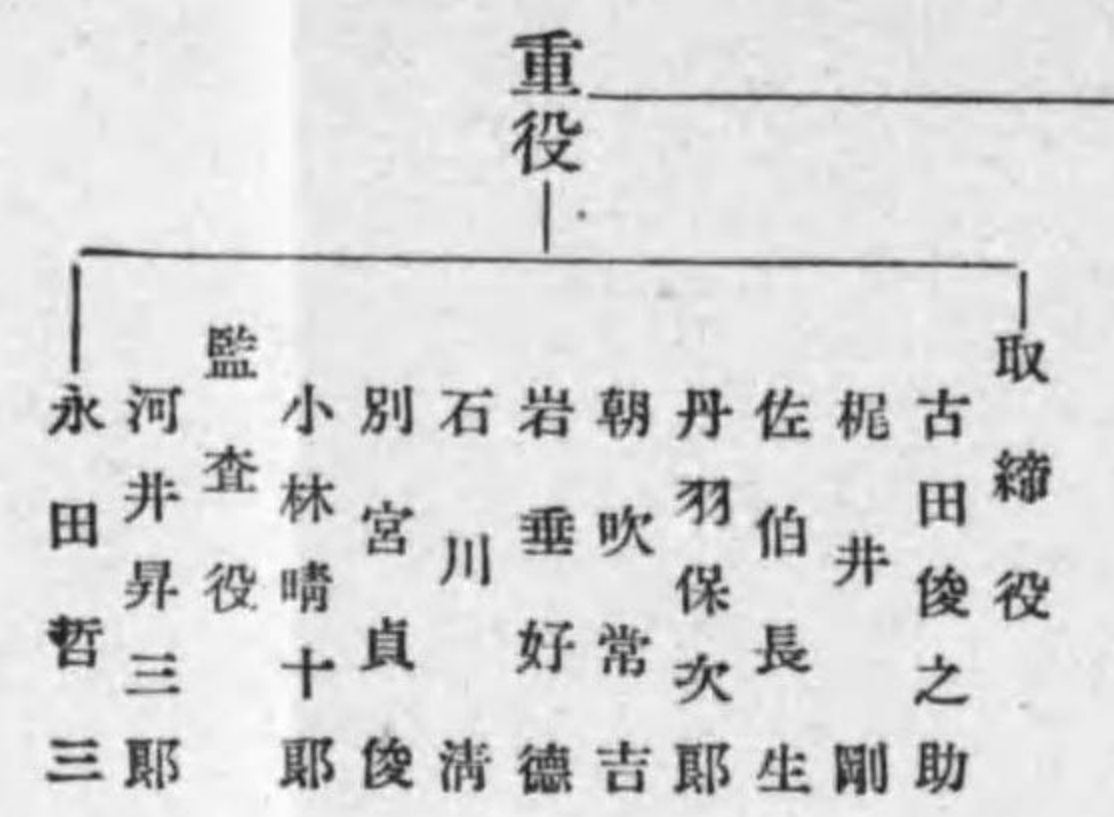 重役
取締役
古田俊之助
梶井剛
佐伯長生
丹羽保次郎
朝吹常吉
岩垂好德
石川清
別宮貞俊
小林晴十郎
監査役
河井昇三郎
永田哲三